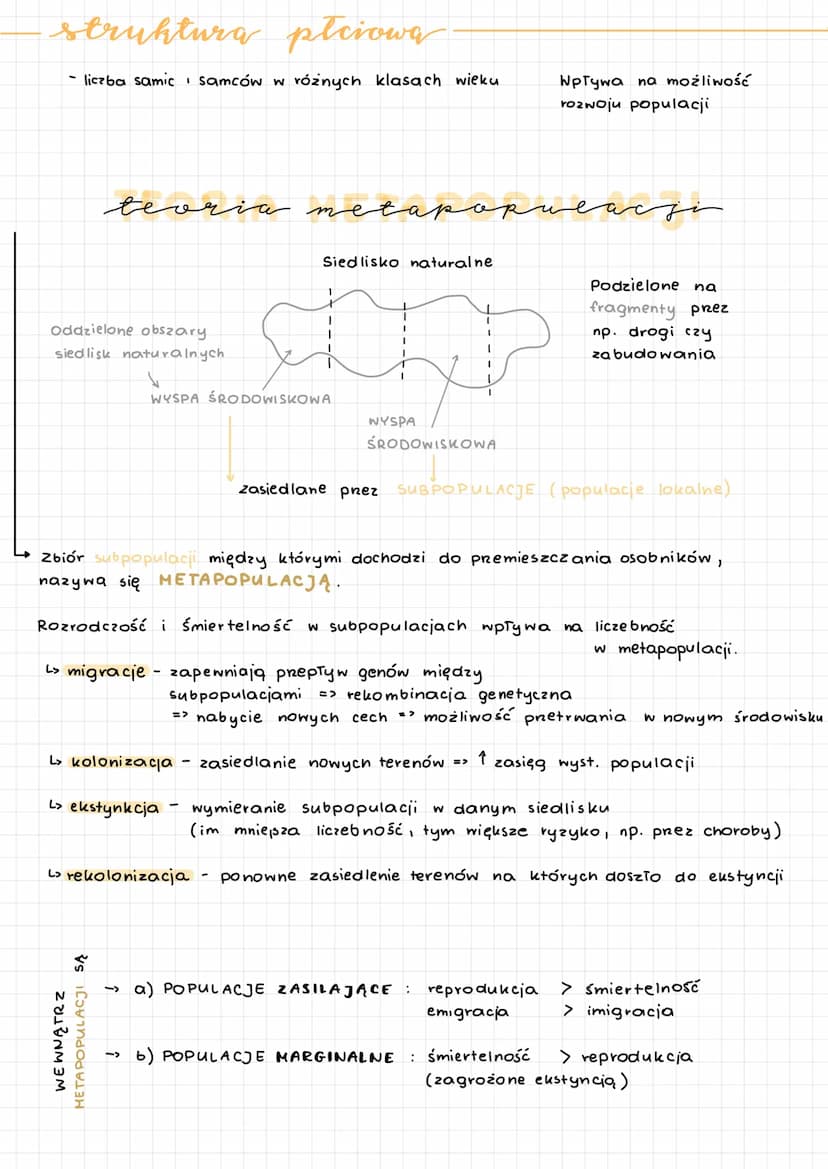 struktura płciowa
- liczba samic i samców w różnych klasach wieku
Wpływa na możliwość
rozwoju populacji
TEORIA METAPOPULACJI
teoria metapopulacji
Siedlisko naturalne
Podzielone na
fragmenty przez
np. drogi czy
zabudowania
oddzielone obszary
siedlisk naturalnych
WYSPA ŚRODOWISKOWA
WYSPA
ŚRODOWISKOWA
zasiedlane przez SUBPOPULACJE (populacje lokalne)
Zbiór subpopulacji między którymi dochodzi do przemieszczania osobników,
nazywa się METAPOPULACJĄ.
Rozrodczość i śmiertelność w subpopulacjach wpływa na liczebność
w metapopulacji.
↳ migracje - zapewniają przepływ genów między
subpopulacjami => rekombinacja genetyczna
=> nabycie nowych cech => możliwość przetrwania w nowym środowisku
↳ kolonizacja - zasiedlanie nowych terenów => ↑ zasięg wyst. populacji
↳ ekstynkcja - wymieranie subpopulacji w danym siedlisku
(im mniejsza liczebność, tym większe ryzyko, np. przez choroby)
↳ rekolonizacja - ponowne zasiedlenie terenów na których doszło do ekstyncji
WEWNĄTRZ
METAPOPULACJI SĄ
→ a) POPULACJE ZASILAJĄCE : reprodukcja > śmiertelność
emigracja > imigracja
→ b) POPULACJE MARGINALNE : śmiertelność > reprodukcja
(zagrożone ekstyncją)